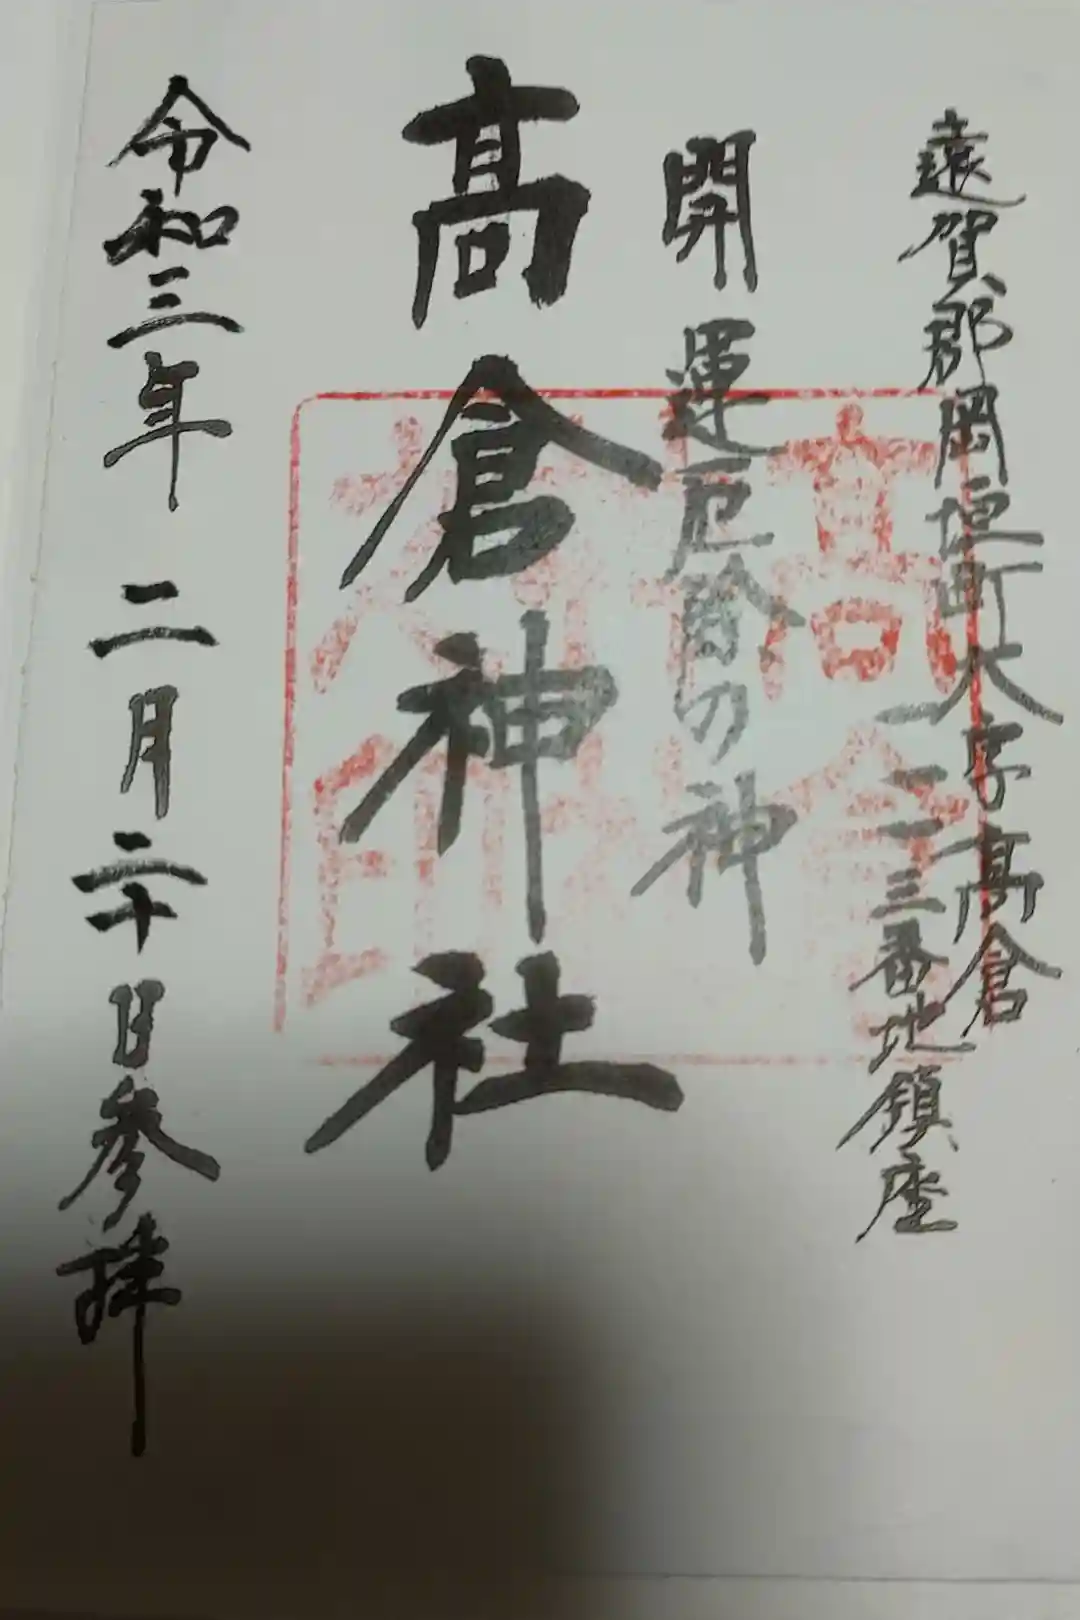 遠賀郡岡垣町大字高倉
一一一三番地鎮座
開運厄除の神
高倉神社
令和三年 二月二十日参拝